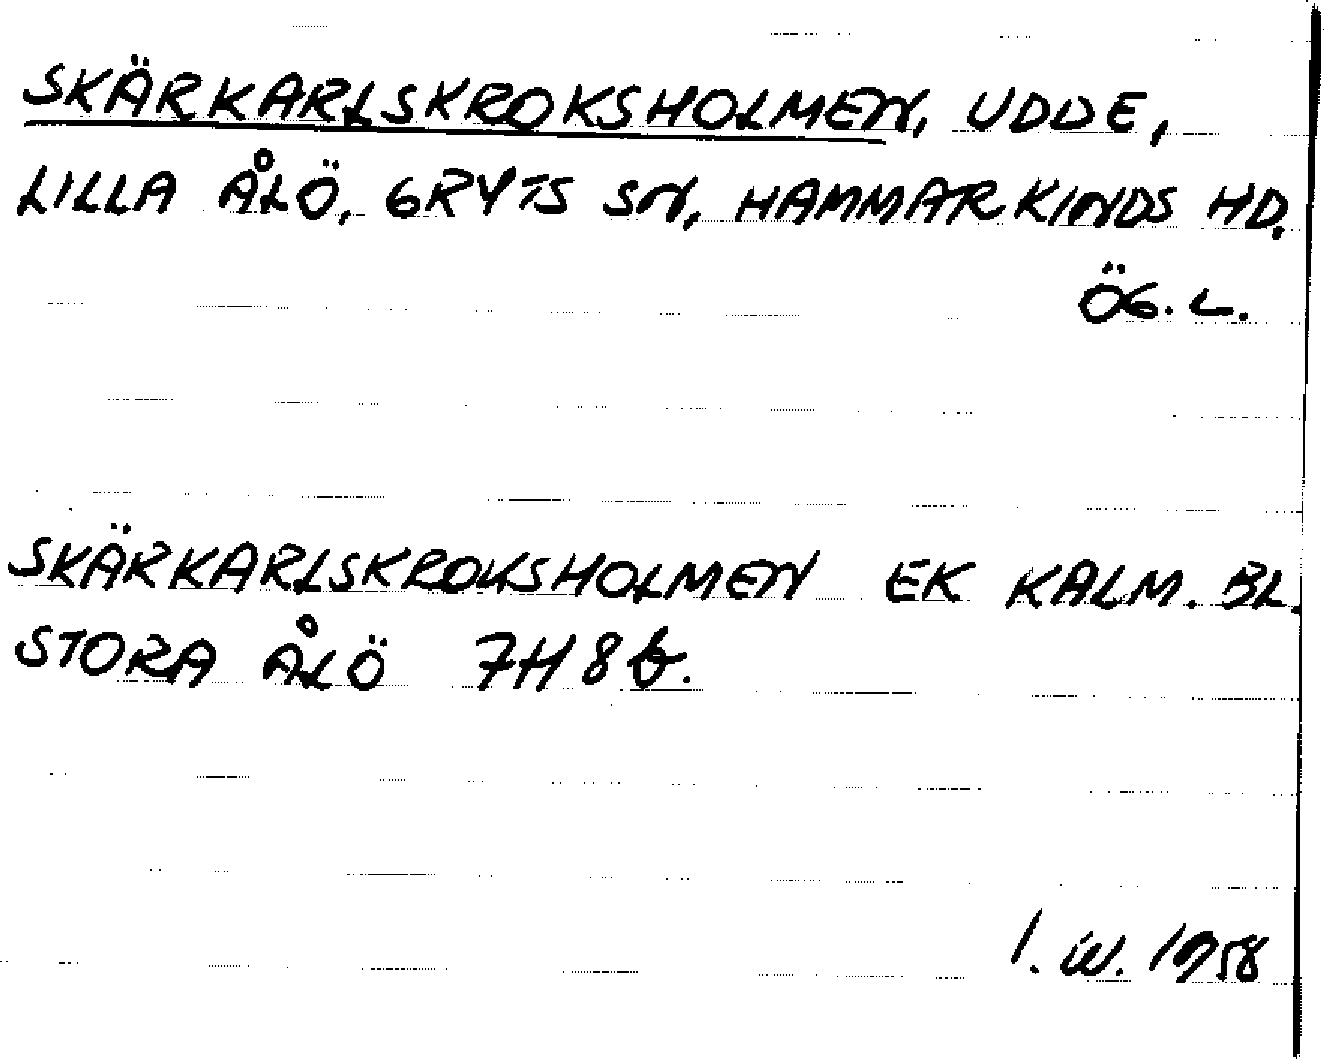 SKÄRKARLSKROKSHOLMEN, UDDE,
LILLA ÅLÖ, GRYTS SN, HAMMARKINDS HD.
ÖG. L.
SKÄRKARLSKROKSHOLMEN EK KALM. BL.
STORA ÅLÖ 7H 8 b.
I. W. 1958